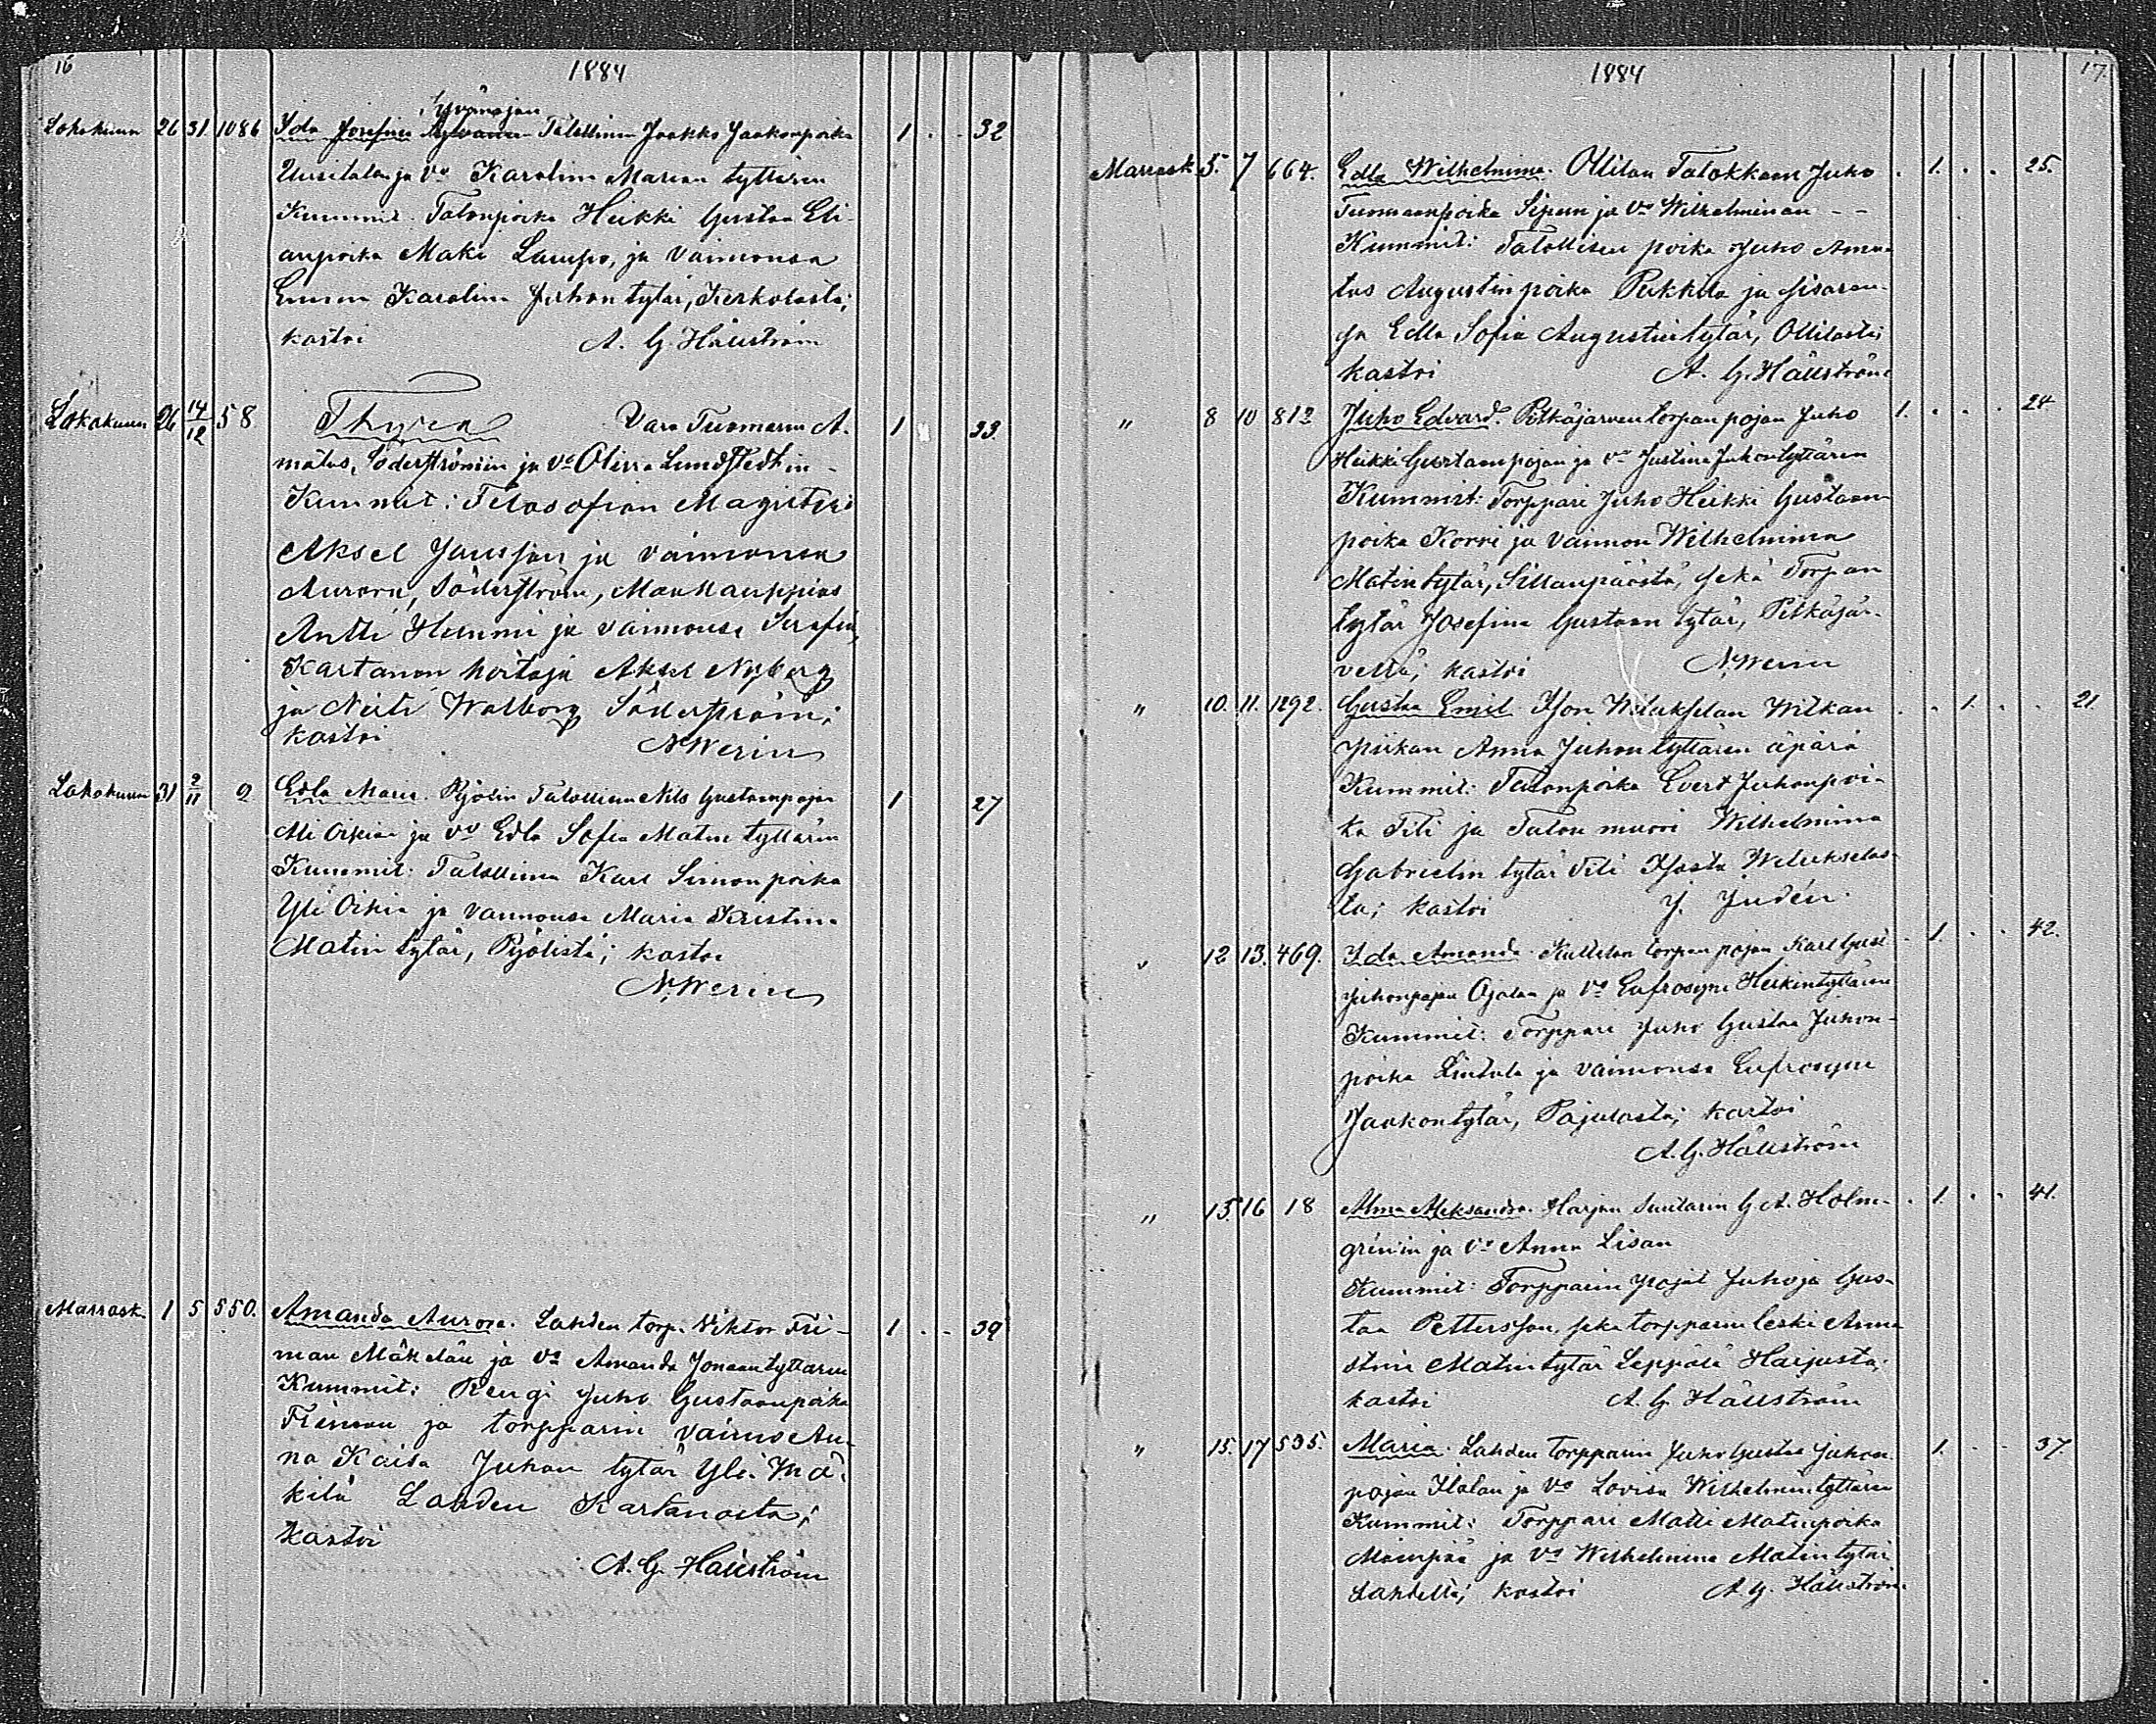 16
1884
Syvänojan
Lokakuun 26 31. 1086 Ida Josefina Talollinen Jaakko Jaakonpoika 1 . . 32
Uusitalon ja vo Karolina Marian tyttären
Kummit. Talonpoika Heikki Gustaa Eli-
anpoika Maki Lampo, ja vaimonsa
Emma Karolina Juhon tytär, Kerkolasta;
kastoi A. G. Häuström
Lokakuun 26 14/12 58 Thyra Vara Tuomarin A. 1 33.
matus, Söderströmin ja vo Olivia Lundstedtin
Kummit: Filosofian Magisteri
Aksel Jansson ja vaimonsa
Aurora, Söderström, Maakauppias
Antti Hemmi ja vaimonsa Serafia,
Kartanon hoitaja Aksel Nyberg
ja Neiti Walborg Söderström;
kastoi N. Werin
Lokakuun 31 2/11 2 Edla Maria. Pyölin Talollinen Nils Gustaanpojan 1 27
Ali Oikian ja vo Edla Sofia Matin tyttären
Kummit: Talollinen Karl Simonpoika
Yli Oikia ja vaimonsa Maria Kristina
Matin tytär, Pyölistä; kastoi
N. Werin
Marrask. 1 5 550. Amanda Aurora. Lahden torp. Viktor Fri- 1 . . 39
man Mäkelän ja vo Amanda Jonaantyttären
Kummit: Rengi Juho Gustaanpoika
Friman ja torpparin vaimo An-
na Kaisa Juhan tytär Yli-Mä-
kilä Lahden Kartanosta;
kastoi
A. G. Häuström
17.
1884
Marrask. 5. 7 664. Edla Wilhelmina. Ollilan Talokkaan Juho . 1. . . 25.
Tuomaanpoika Sipun ja vo Wilhelminan - -
Kummit: Talollisen poika Juho Ama-
tus Augustinpoika Pukkila ja sisaren-
sa Edla Sofia Augustintytär, Ollilasta;
kastoi A. G. Häuström
" 8 10 812 Juho Edvard. Pitkäjärven torpan pojan Juho 1. . . . 24.
Heikki Gustaanpojan ja vo Justina Juhontyttären
Kummit: Torppari Juho Heikki Gustaan-
poika Korri ja vaimon Wilhelmina
Matin tytär, Sillanpäästä, sekä Torpan
tytär Josefina Gustaan tytär, Pitkäjär-
veltä; kastoi N. Werin
" 10. 11. 1292. Gustaa Emil. Ison Witikkalan . . 1. . . 21
piikan Anna Juhontyttären äpärä
Kummit: Talonpoika Evert Juhonpoi-
ka Tili ja Talon muori Wilhelmina
Gabrielin tytär Tili Isosta
ta; kastoi J. Judén
" 12 13. 469. Ida Amanda. torpan pojan Karl Gust. . 1. . . 42.
Juhonpojan Ojalan ja vo Eufrosyne Heikintyttären
Kummit: Torppari Juho Gustaa Juhon-
poika Lintula ja vaimonsa Eufrosyne
Jaakontytär, Pajulasta; kastoi
A. G. Häuström
" 15. 16 18 Alma Aleksandra. Harjun Suutarin G. A. Holm- . 1. . . 41.
grénin ja vo Anna Lisan
Kummit: Torpparin pojat Juho ja Gus-
taa Pettersson, seka torpparin leski Anna
Stiina Matin tytär Leppälä Harjusta;
kastoi A. G. Häuström
" 15. 17 535. Maria. Lahden torpparin Juho Gustaa Juhon- 1. . . 37
pojan Ilolan ja vo Lovisa Wilhelmiinantyttären
Kummit: Torppari Matti Matinpoika
ja vo Wilhelmina Matin tytär
Lahdelta; kastoi A. G. Häuström